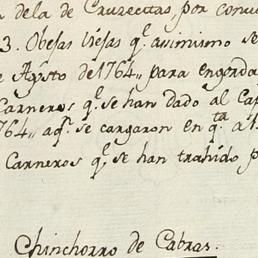 a dela de Cruzecitas por conv
3. Obejas Viejas q.e asimismo se
e Ag.sto de 1764,, para engorda
Carneros q.e se han dado al Cap
764,, aq.e se cargaron en q.ta a 1
Carneros q.e se han trahido p
Chinchorro de Cabras.